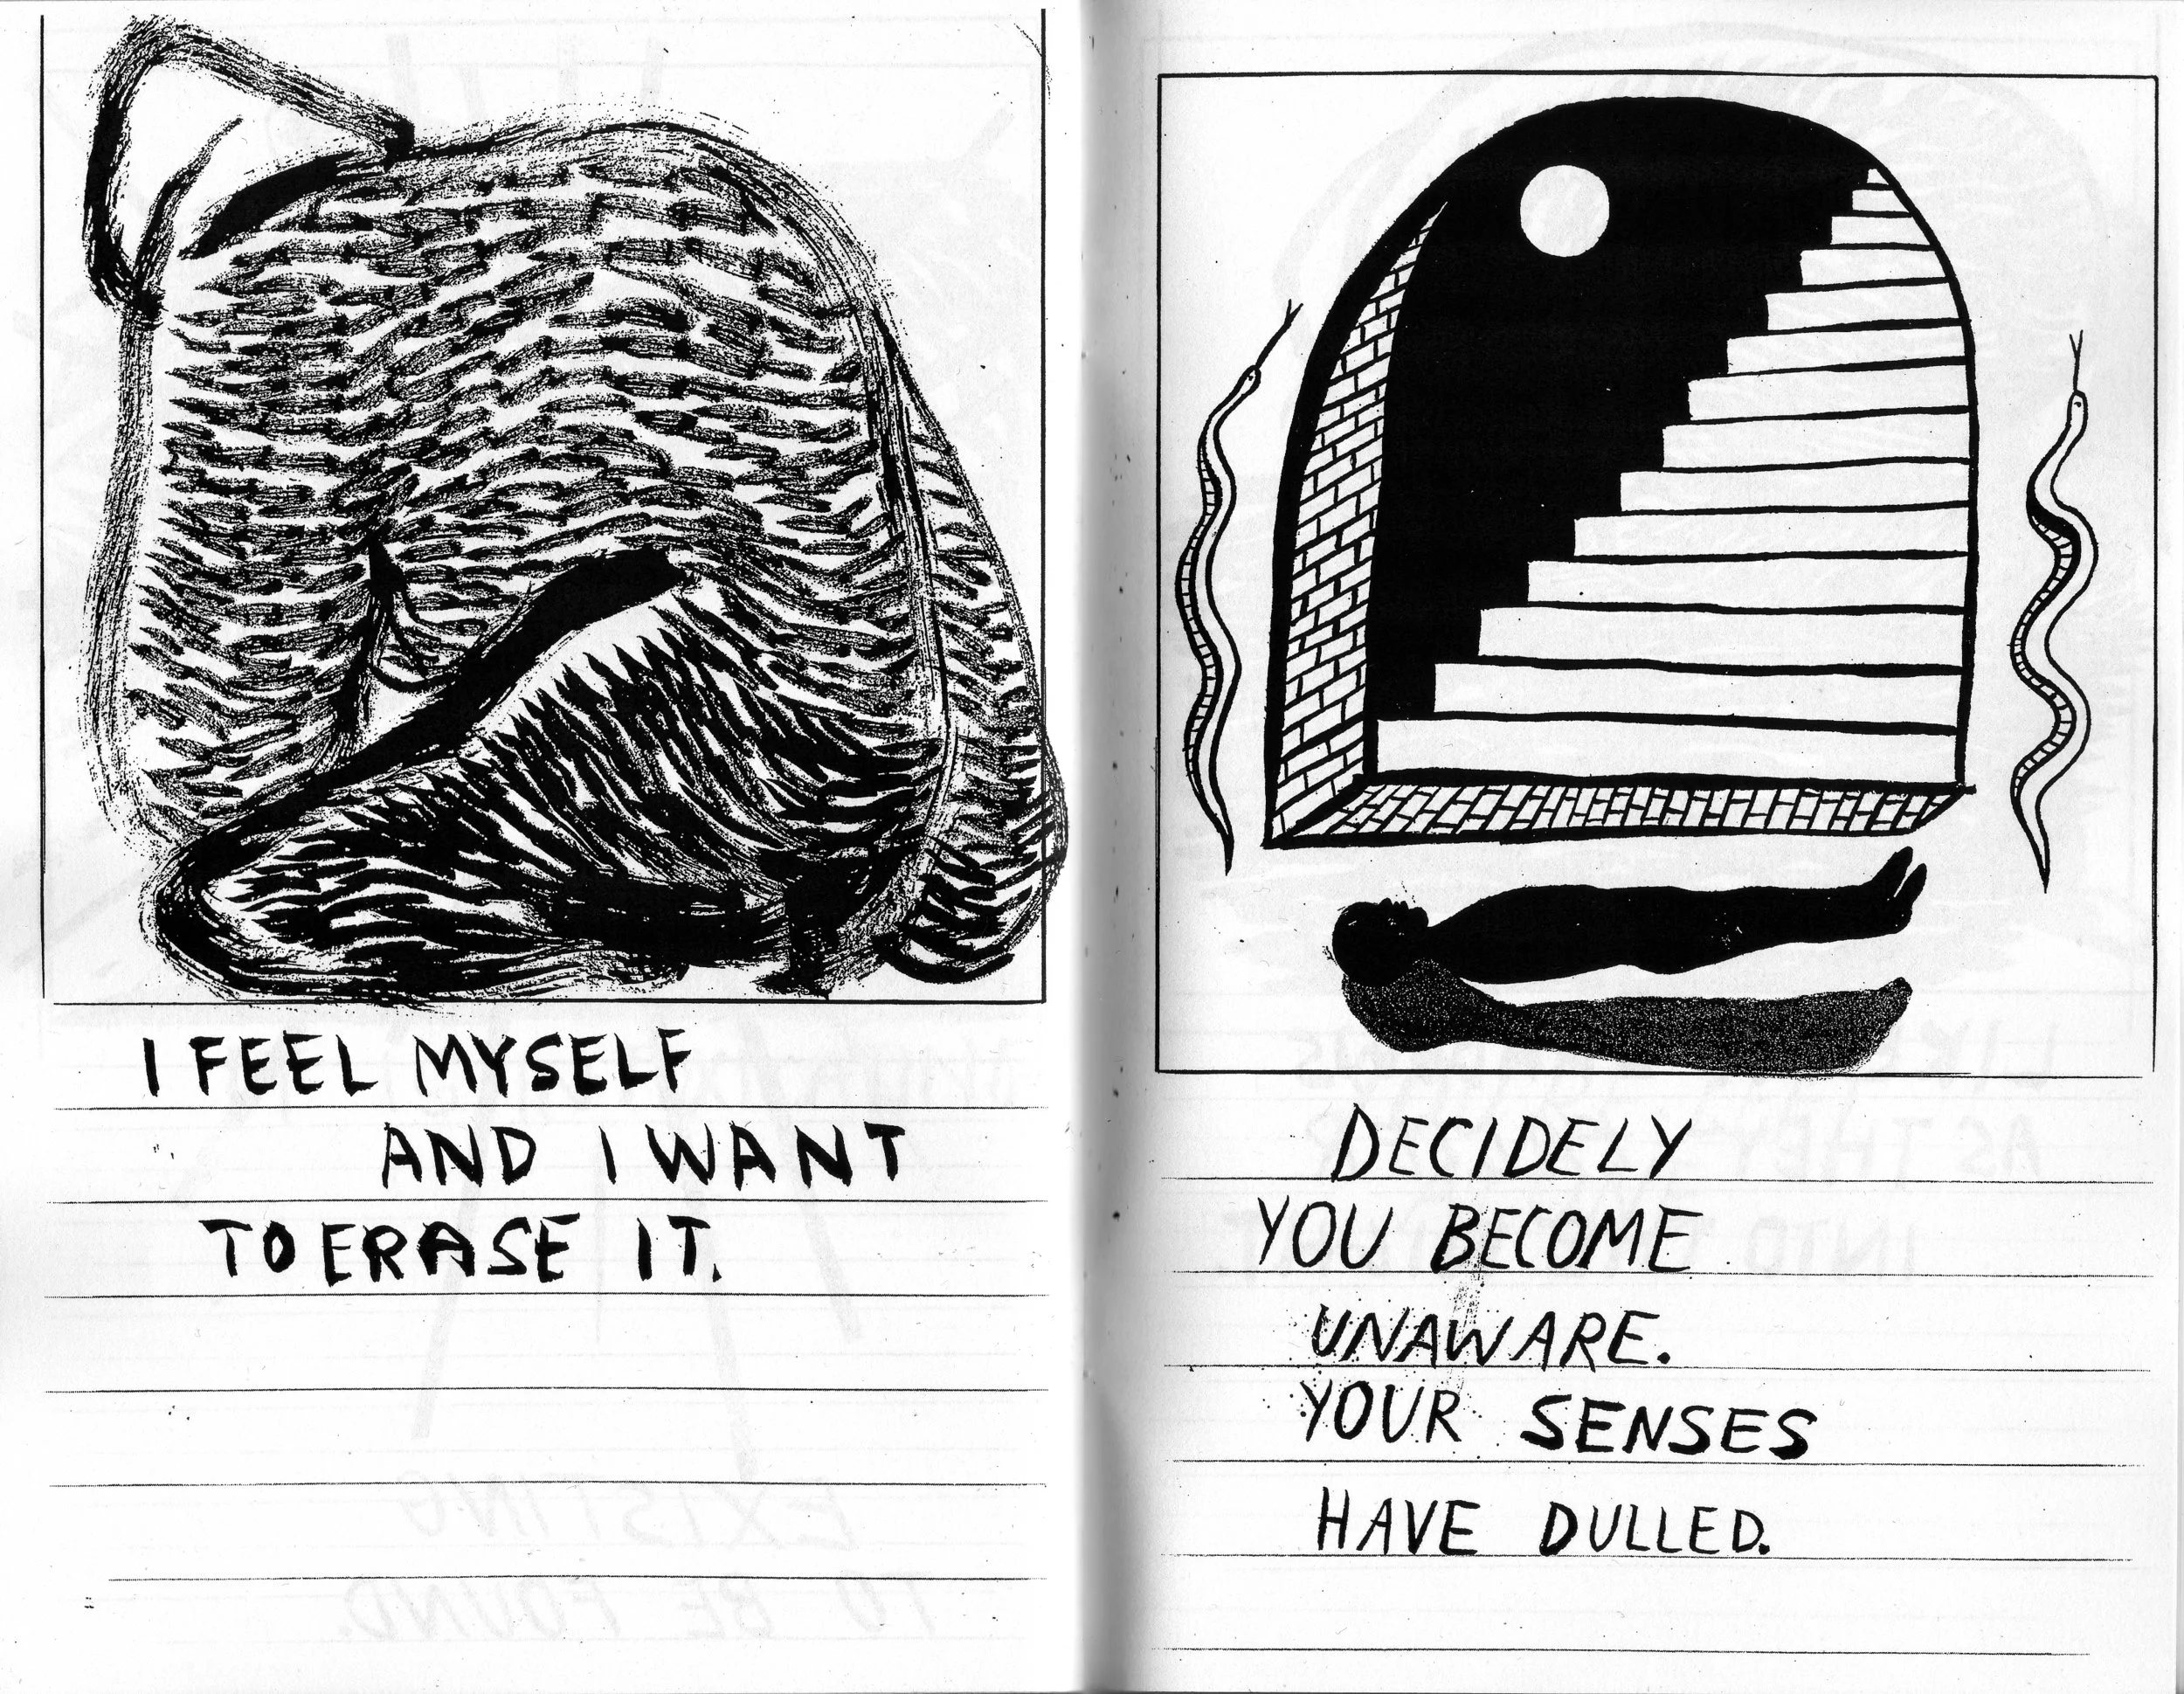 I FEEL MYSELF
AND I WANT
TO ERASE IT.
DECIDELY
YOU BECOME
UNAWARE.
YOUR SENSES
HAVE DULLED.
EXISTING
TO BE FOUND.